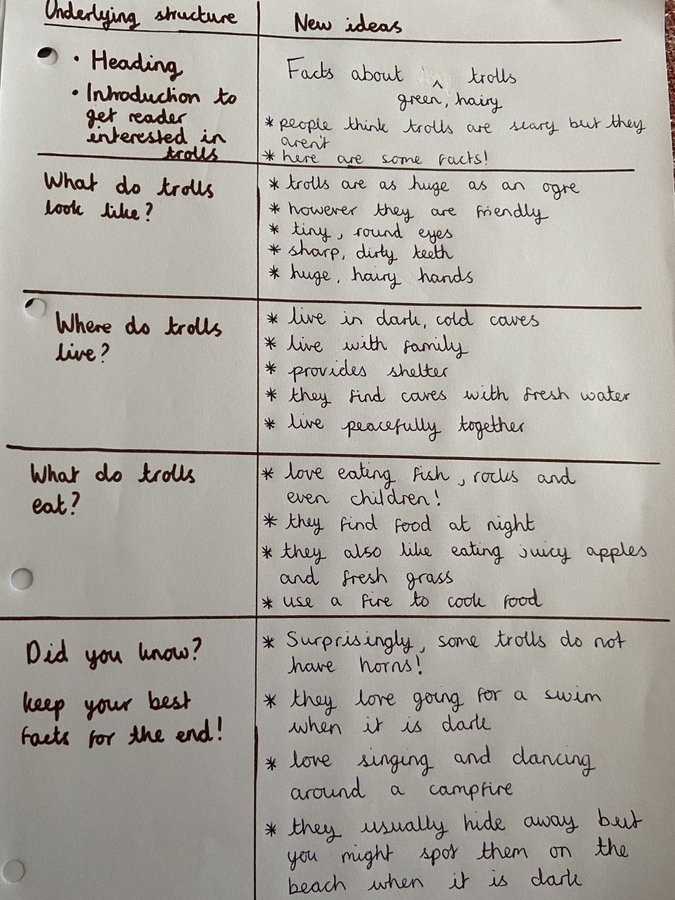 Underlying structure
New ideas
• Heading
• Introduction to
get reader
interested in
trolls
Facts about ^ trolls
green, hairy
* people think trolls are scary but they
aren't
* here are some facts!
What do trolls
look like?
* trolls are as huge as an ogre
* however they are friendly
* tiny, round eyes
* sharp, dirty teeth
* huge, hairy hands
Where do trolls
live?
* live in dark, cold caves
* live with family
* provides shelter
* they find caves with fresh water
* live peacefully together
What do trolls
eat?
* love eating fish, rocks and
even children!
* they find food at night
* they also like eating juicy apples
and fresh grass
* use a fire to cook food
Did you know?
keep your best
facts for the end!
* Surprisingly, some trolls do not
have horns!
* they love going for a swim
when it is dark
* love singing and dancing
around a campfire
* they usually hide away but
you might spot them on the
beach when it is dark